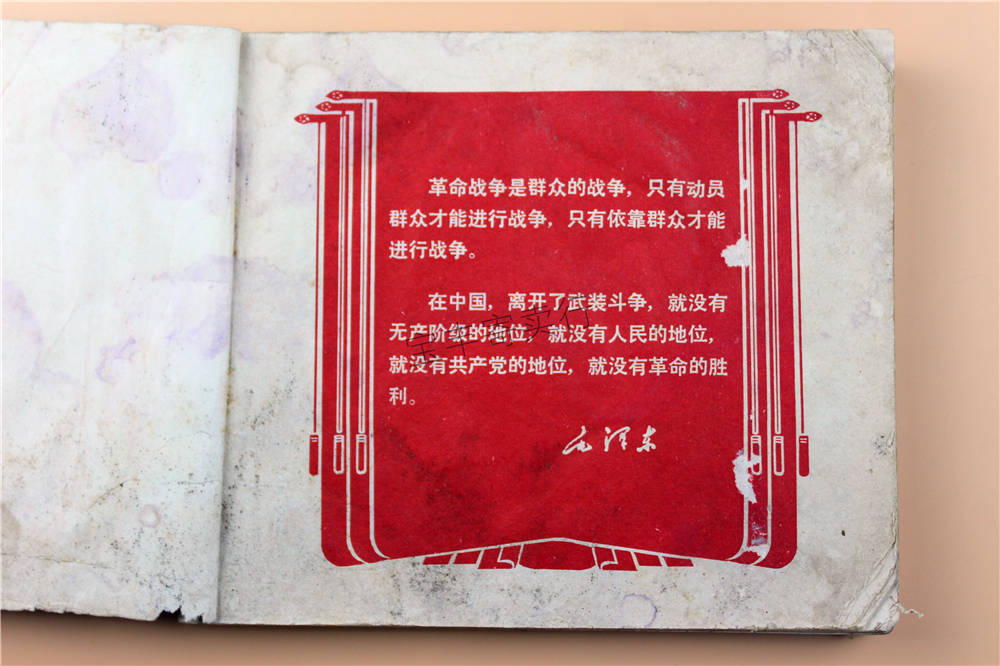 革命战争是群众的战争，只有动员
群众才能进行战争，只有依靠群众才能
进行战争。
在中国，离开了武装斗争，就没有
无产阶级的地位，就没有人民的地位，
就没有共产党的地位，就没有革命的胜
利。
毛泽东